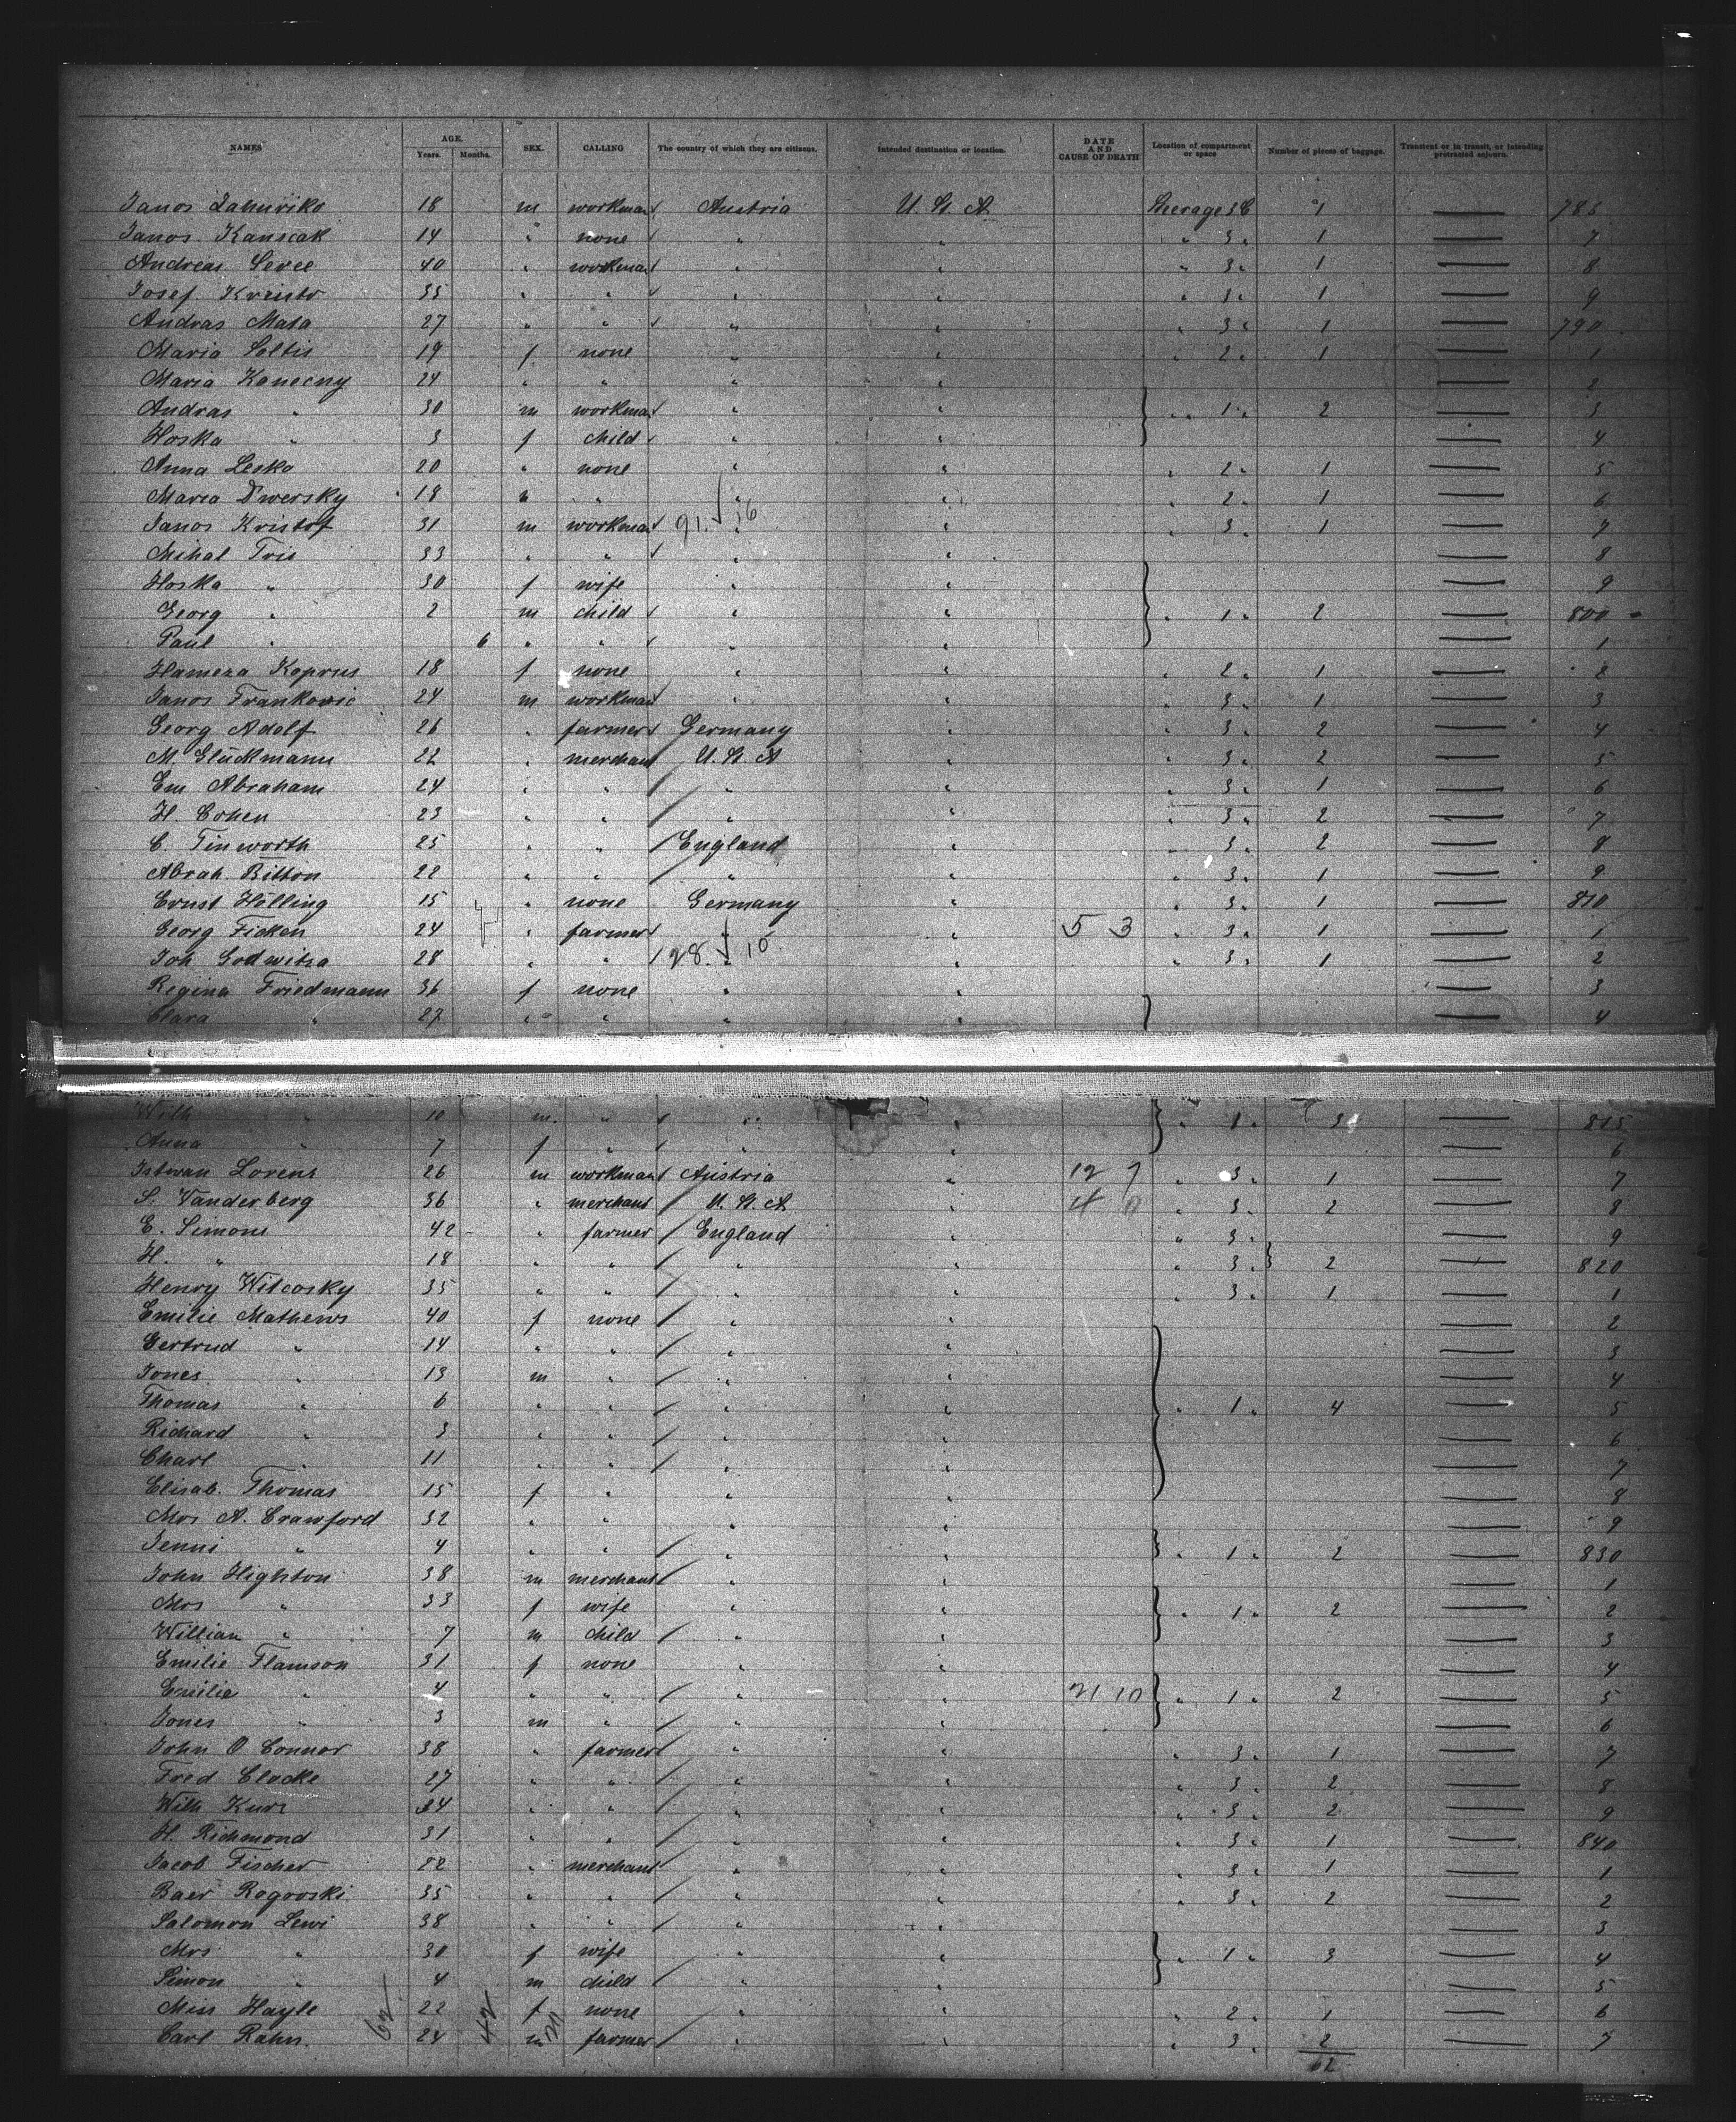 NAMES AGE. Years. Months. SEX. CALLING The country of which they are citizens. Intended destination or location. DATE AND CAUSE OF DEATH Location of compartment or space Number of pieces of baggage. Transient or in transit, or intending protracted sojourn.
Janos 18 m workman Austria U. St. A. Steerage 3 1
Janos Kanscak 14 " none " " " 3 " 1 7
Andreas 40 " workman " " " 3 " 1 8
Josef 35 " " " " " 3 " 1 9
Andras Mata 27 " " " " " 3 " 1 790
Maria Soltis 19 f none " " " 2 " 1 1
Maria Konecny 24 " " " " 2
Andras " 30 m workman " " " 1 " 2 3
Hoska " 3 f child " " 4
Anna Lesko 20 " none " " " 2 " 1 5
Maria Dwersky 18 " " " " " 2 " 1 6
Janos Kristof 31 m workman 91. 16 " " " 3 " 1 7
Mihal Tris 33 " " " " 8
Hoska " 30 f wife " " 9
Georg " 2 m child " " " 1 " 2 800
Paul " 6 " " " " 1
Hameza Koprus 18 f none " " " 2 " 1 2
Janos Frankovic 24 m workman " " " 3 " 1 3
Georg Adolf 26 " farmer Germany " " 3 " 2 4
M. Glückmann 22 " merchant U. St. A " " 3 " 2 5
Em Abraham 24 " " " " " 3 " 1 6
H. Cohen 23 " " " " " 3 " 2 7
C. Tinworth 25 " " England " " 3 " 2 8
Abrah Bitton 22 " " " " " 3 " 1 9
Ernst Hölling 15 " none Germany " " 3 " 1 810
Georg Ficken 24 " farmer " " 5 3 " 3 " 1 1
Joh 28 " " 28. 10 " " " 3 " 1 2
Regina Friedmann 36 f none " " 3
Clara " 27 " " " " 4
Wilh " 10 m " " " " 1 " 3 815
Anna " 7 f " " " 6
Istwan Lorens 26 m workman Austria " 12 7 " 3 " 1 7
S. Vanderberg 36 " merchant U. St. A " 4 " 3 " 2 8
E. Simons 42 " farmer England " " 3 " 9
H. " 18 " " " " " 3 " 2 820
Henry Witcosky 35 " " " " " 3 " 1 1
Emilie Mathews 40 f none " " 2
Gertrud " 14 " " " " 3
Jones " 13 m " " " 4
Thomas " 6 " " " " " 1 " 4 5
Richard " 3 " " " " 6
Charl " 11 " " " " 7
Elisab. Thomas 15 f " " " 8
Mrs A. Crawford 32 " " " " 9
Jenni " 4 " " " " " 1 " 2 830
John Highton 38 m merchant " " 1
Mrs " 33 f wife " " " 1 " 2 2
Willian " 7 m child " " 3
Emilie Flamson 31 f none " " 4
Emilie " 4 " " " " 21 10 " 1 " 2 5
Jones " 3 m " " " 6
John O Connor 38 " farmer " " " 3 " 1 7
Fred Clacke 27 " " " " " 3 " 2 8
Wilh Kurz 34 " " " " " 3 " 2 9
H. Richmond 31 " " " " " 3 " 1 840
Jacob Fischer 22 " merchant " " " 3 " 1 1
Baer Rogovski 35 " " " " " 3 " 2 2
Salomon Lewi 38 " " " " 3
Mrs " 30 f wife " " " 1 " 3 4
Simon " 4 m child " " 5
Miss Hayle 22 f none " " " 2 " 1 6
Carl Rahn 24 m farmer " " " 3 " 2 7
62 42 62